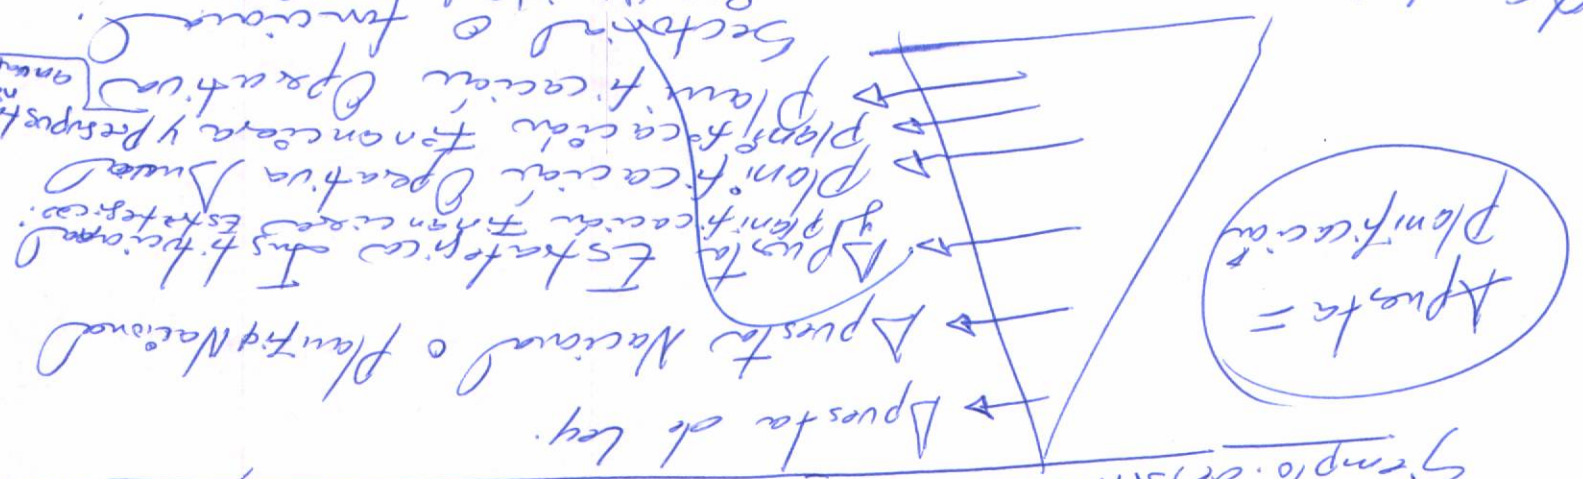 Ejemplo.
Apuesta =
Planificación
Apuesta de Ley.
Apuesta Nacional o Planifiq Nacional
Apuesta Estratégica Institucional
y planificación Financiera Estrategica.
Planificación Operativa Anual
Planificación Financiera y Presupuest
anual
Planificación Operativa
Sectorial o funcional.